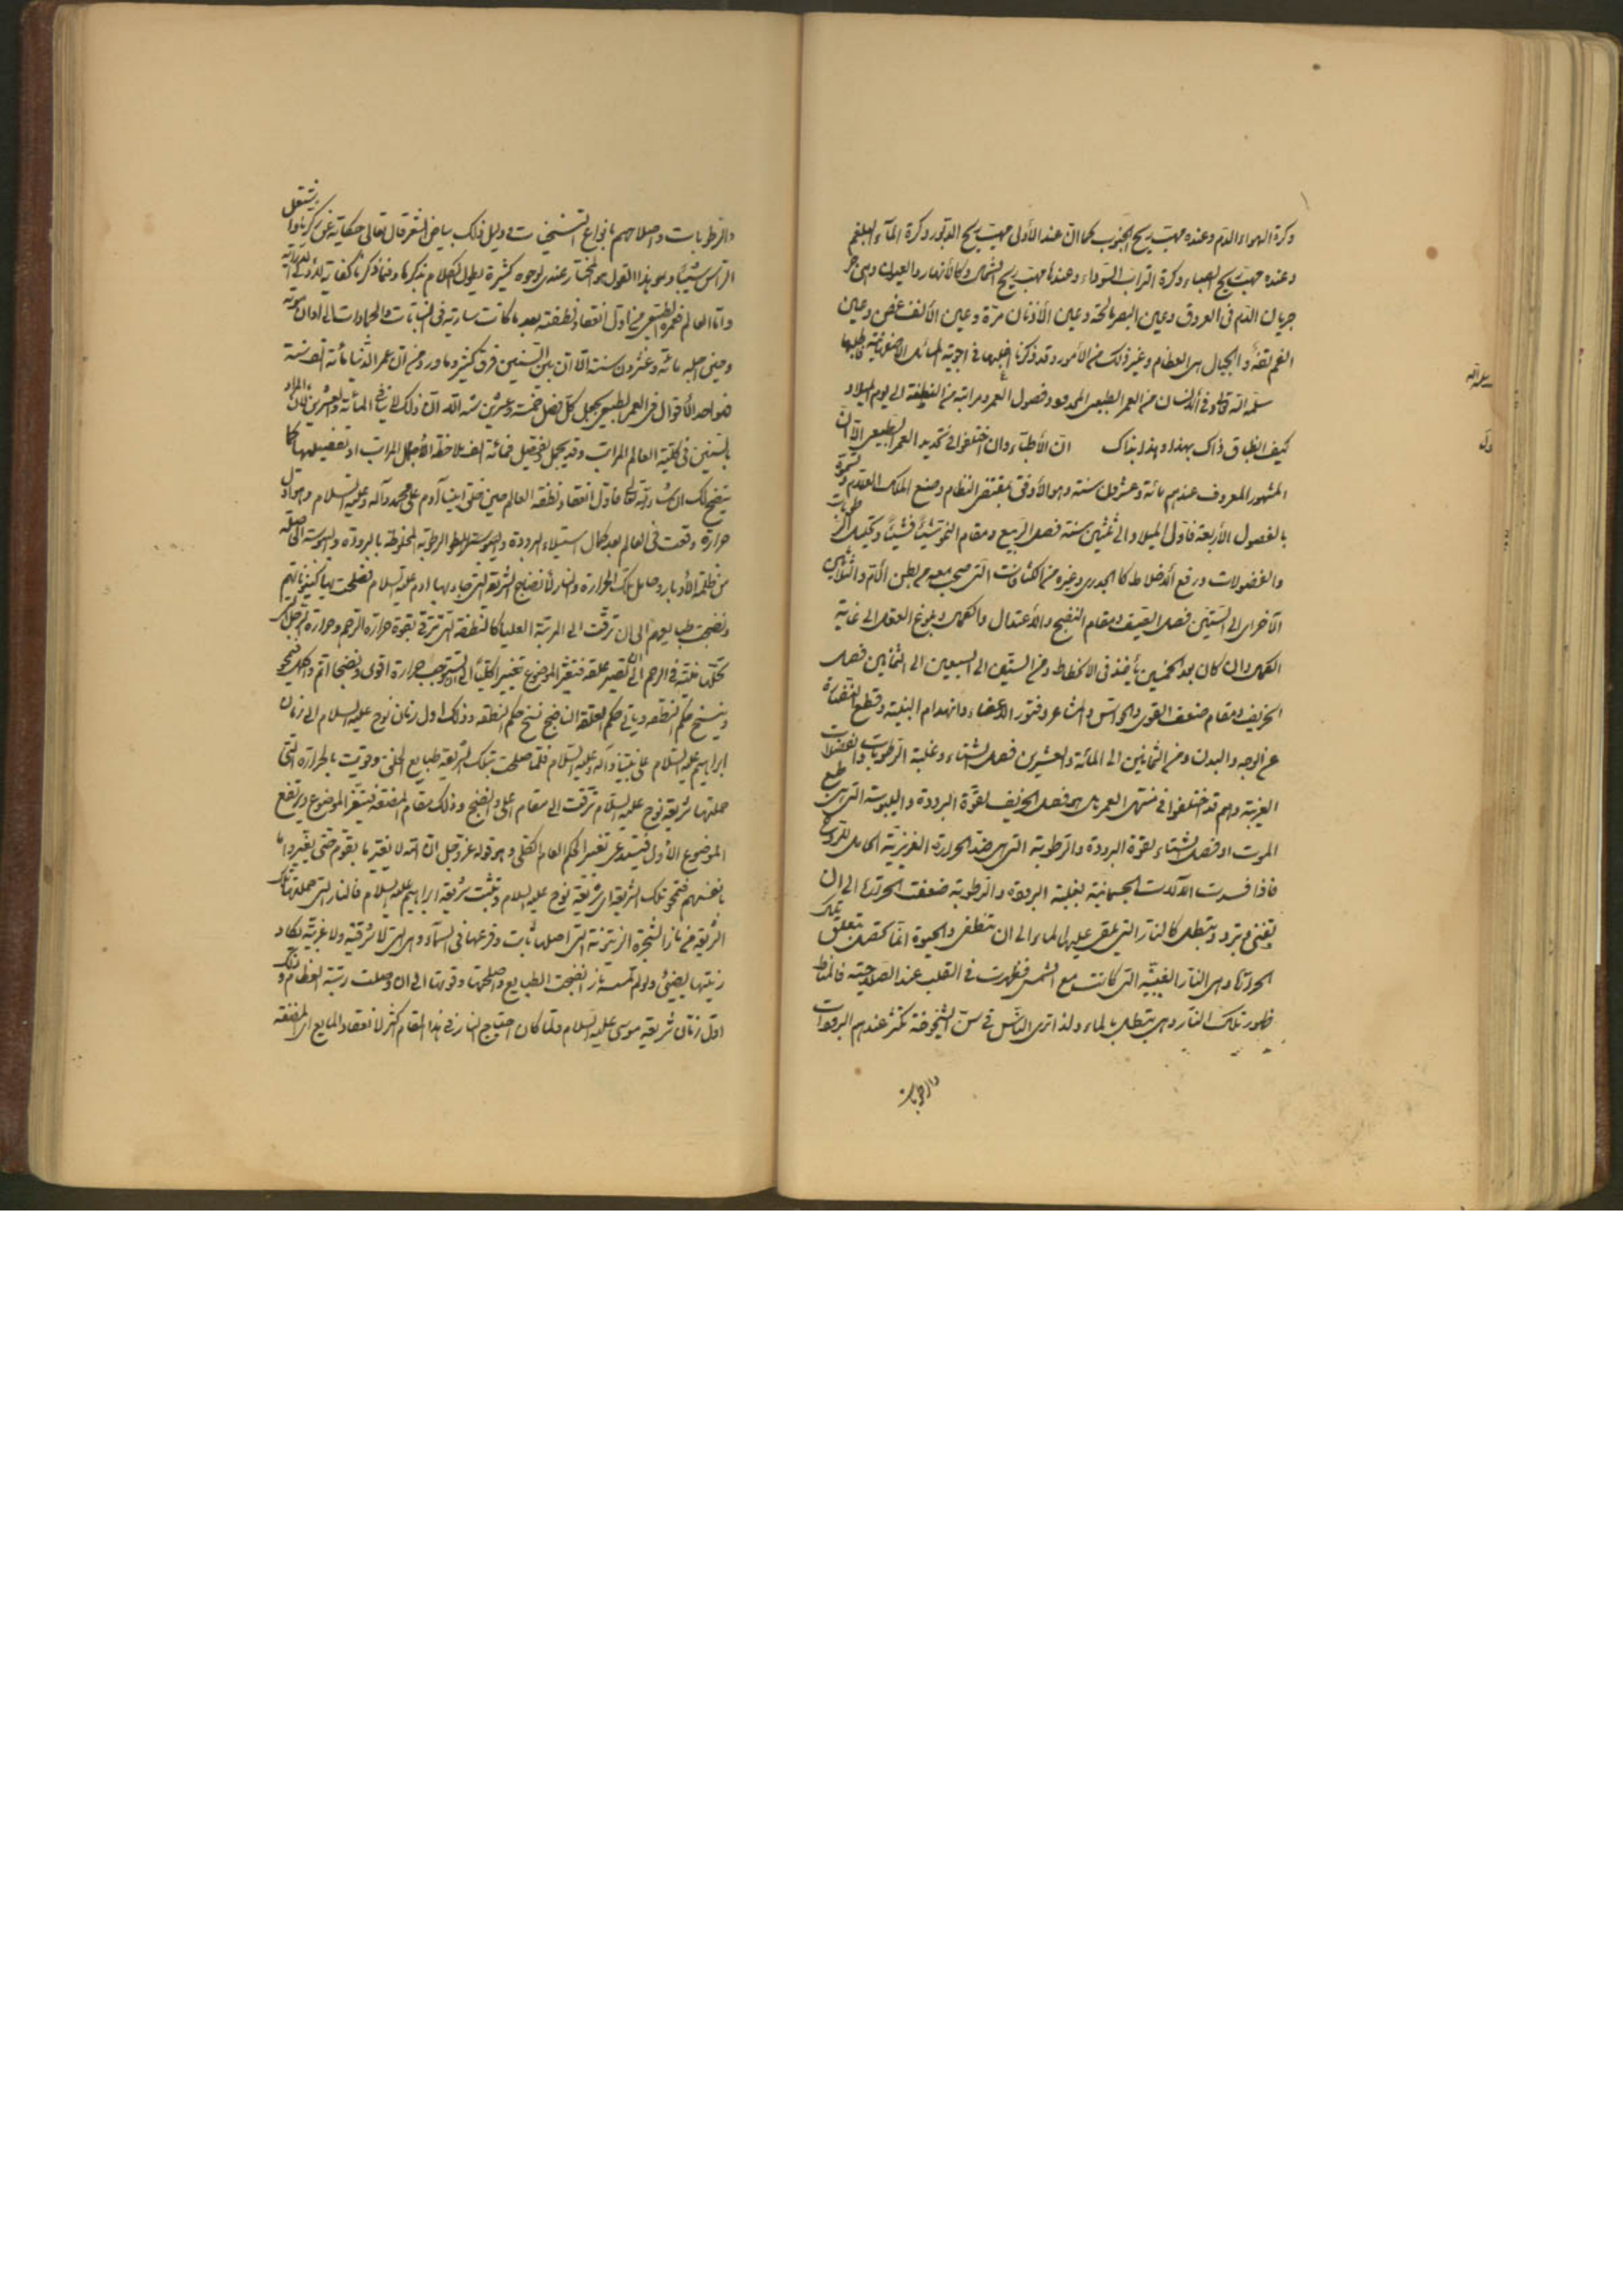 وكرة الهواء الدم وعنده مهبّ ريح الجنوب كما انّ عند الأولى مهبّ ريح الدبّور وكرة المآء البلغم
وعنده مهبّ ريح الصباء وكرة التراب السّوداء وعندها مهبّ ريح الشمال وكالأنهار والعيون وهى
جريان الدّم فى العروق وعين البصر مالحة وعين الأذنان مرّة وعين الأنف وعين
الفم والجبال هى العظام وغير ذلك من الأمور وقد ذكرنا اغلبها فى اجوبة المسائل
سلّمه الله تعالى وفى الانسان من العمر الطبيعى وفصول العمر ومراتبه من النطفة الى يوم الميلاد
كيف انطباق ذاك بهذا وهذا بذاك انّ الأطبّاء وان اختلفوا فى تحديد العمر الطبيعى الّا انّ
المشهور المعروف عندهم مائة وعشرون سنة وهو الأوفق بمقتضى النظام وصنع الملك العلّام
بالفصول الأربعة فأول الميلاد الى ثلثين سنة فصل الربيع ومقام النموّ شيئاً فشيئاً
والفضولات ورفع الاخلاط كالجدرى وغيره من الكثافات التى صحب معه من بطن الأم والثلاثين
الأخرى الى الستّين فصل الصّيف ومقام النضج والأعتدال والكمال وبلوغ العقل الى غاية
الكمال وان كان بعد الخمسين يأخذ فى الانحطاط ومن الستّين الى السبعين الى الثمانين فصل
الخريف ومقام ضعف القوى والحواس والمشاعر وفتور الاعضاء وانهدام البنية وقطع النضارة
عن الوجه والبدن ومن الثمانين الى المائة والعشرين فصل الشتاء وغلبة الرّطوبات والفضلات
الغريبة وهم قد اختلفوا فى منتهى العمر هل هو فصل الخريف لقوّة البرودة واليبوسة التى هى طبع
الموت او فصل الشتاء لقوّة البرودة والرّطوبة التى هى ضد الحرارة الغريزيّة الحاملة للروح
فاذا فسدت الآلات الجسمانية بغلبة البرودة والرطوبة ضعفت الحرارة الى ان
تفنى وتبرد وتبطل كالنار التى يلقى عليها الماء الى ان تنطفى والحيوة انّما تحصل بتعلّق تلك
الحرارة وهى النار الغيبيّة التى كانت مع الشمس فظهرت فى القلب عند الصّلاحية
ظهور تلك النار وهى تبطل بالماء ولذا ترى الناس فى سنّ الشيخوخة تكثر عندهم البرودات
والرطوبات
والرّطوبات واصلاحهم بانواع التسخينات ودليل ذلك بياض الشعر قال تعالى حكاية عن زكريّا واشتعل
الرّأس شيباً وهو هذا القول هو المختار عندى لوجوه كثيرة يطول الكلام بذكرها وفيما ذكرنا كفاية
وامّا العالم فعمره الطبيعى من اوّل انعقاد نطفته بعد ما كانت سارية فى النباتات والجمادات الى اوان موته
وحين اجله مائة وعشرون سنة الّا انّ بين السنين فرق كثير وما ورد من انّ عمر الدنيا مائة الف سنة
فهو احد الأقوال فى العمر الطبيعى بجعل كلّ فصل خمسة وعشرين سنة الّا انّ ذلك لا ينافى المائة والعشرين لانّ المراد
بالسنين فى كليّة العالم المراتب وقد يجمل وقد يفصل فمائة الف بملاحظة الأجمال المراتب او تفصيلها كما
يتضح لك ان شاء الله تعالى فاوّل انعقاد نطفة العالم حين خلق ابينا آدم على محمد وآله وعليه السلام وهو اوّل
حرارة وقعت فى العالم بعد كمال استيلاء البرودة واليبوسة الرطوبة المخلوطة بالبرودة واليبوسة الحاصلة
من ظلمة الأدبار وحامل تلك الحرارة والنار لأنضاج الشريعة التى جاء بها ادم عليه السلام فصلحت بها كينوناتهم
ونضجت طبايعهم الى ان ترقّت الى المرتبة العليا كالنطفة التى تترقى بقوة حرارة الرحم وحرارة
فى الرحم الى ان تصير علقة فتتغيّر الموضوع تغييراً كليّاً الى ان يستوجب حرارة اقوى ونضجا اتمّ واكمل
وينسخ حكم النطفة ويأتى حكم العلقة الناضج نسخ حكم النطفة وذلك اول زمان نوح عليه السلام الى زمان
ابراهيم عليه السلام على نبينا وآله وعليه السلام فلمّا صلحت بتلك الشريعة طبايع الخلق وقويت بالحرارة التى
حملتها شريعة نوح عليه السلام ترقت الى مقام اعلى والنضج وذلك مقام المضغة فيتغيّر الموضوع ويرتفع
الموضوع الأول فيستدعى تغيير الحكم العام الكلّى وهو قوله عزّ وجلّ انّ الله لا يغيّر ما بقوم حتى يغيّروا ما
بانفسهم فتمحو تلك الشريعة اى شريعة نوح عليه السلام وتثبت شريعة ابراهيم عليه السلام فالنار التى حملتها تلك
الشريعة من نار الشجرة الزيتونة التى اصلها ثابت وفرعها فى السماء وهى التى لا شرقية ولا غربيّة يكاد
زيتها يضيئ ولو لم تمسسه نار انضجت الطبايع واصلحتها وقوتها الى ان وصلت رتبة العظام وتلك
اوّل زمان شريعة موسى عليه السلام ولمّا كان احتياج النار فى هذا المقام اكثر لانعقاد المايع اى المضغة